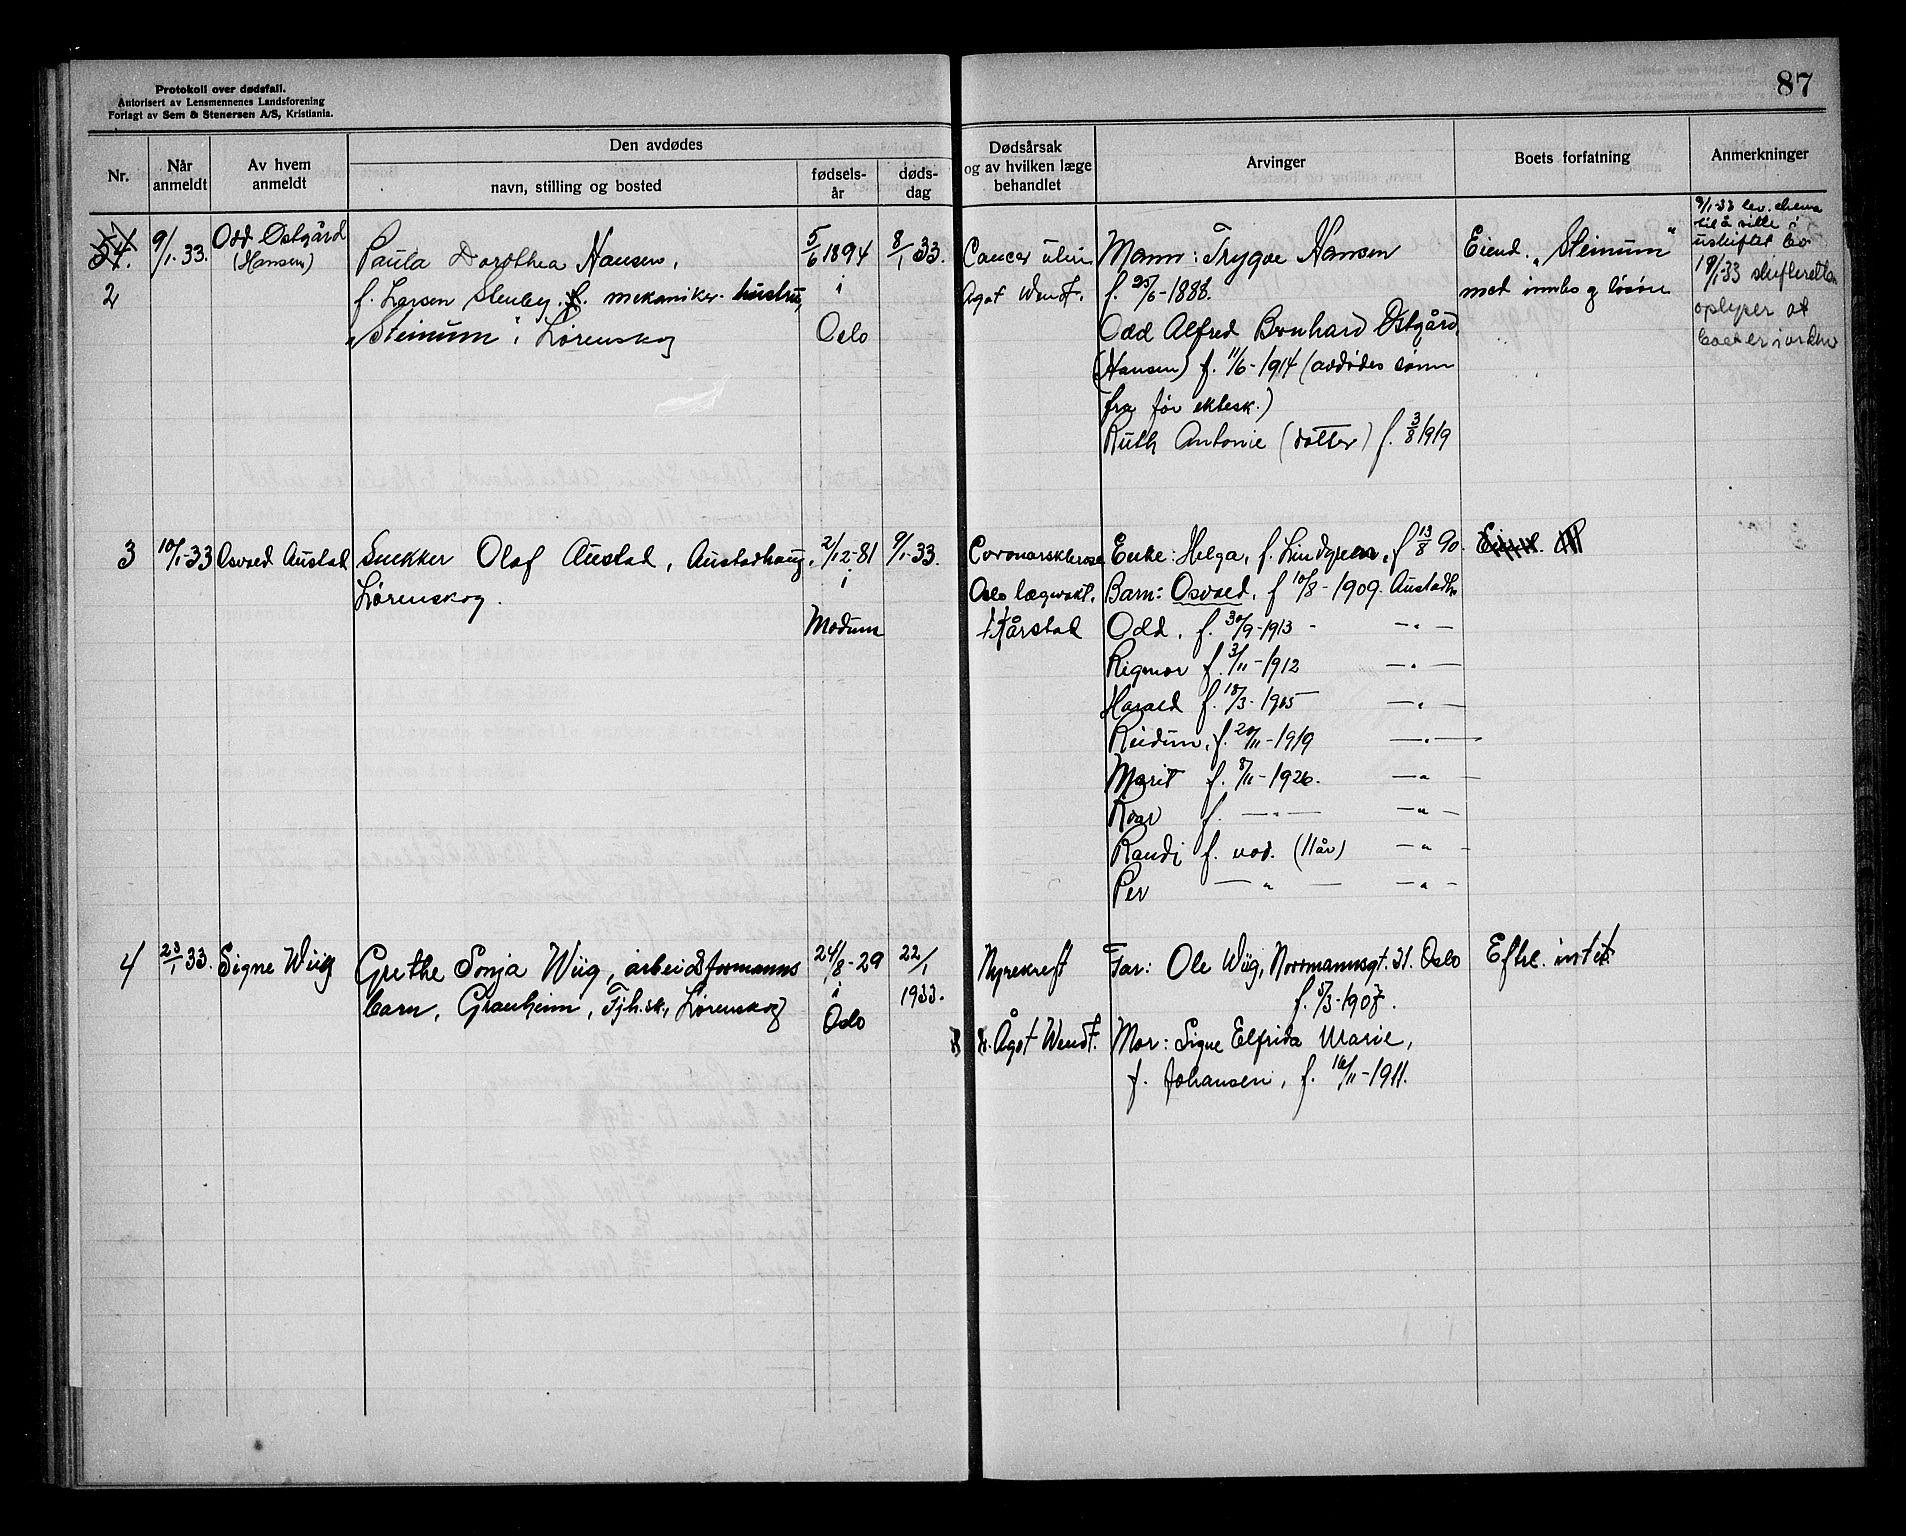 87
Protokoll over dødsfall.
Autorisert av Lensmennenes Landsforening
Forlagt av Sem & Stenersen A/S, Kristiania.
Nr.
Når anmeldt
Av hvem anmeldt
Den avdødes
navn, stilling og bosted
fødsels-år
døds-dag
Dødsårsak og av hvilken læge behandlet
Arvinger
Boets forfatning
Anmerkninger
2
9/1-33.
Odd Østgård
(Hansen)
Paula Dorothea Hansen,
f. Larsen Stenby, mekaniker-hustru,
"Steinum" i Lørenskog
5/6 1894
i
Oslo
8/1 33.
Cancer uteri
Agot Wendt.
Mann: Trygve Hansen
f. 25/6-1888.
Odd Alfred Bernhard Østgård
(Hansen) f. 11/6-1914 (avdødes sønn
fra før ektesk.)
Ruth Antonie (datter) f. 3/8 1919
Eiend. "Steinum"
med innbo g løsøre
9/1-33 lev. skema
til å sitte i
uskiftet bo
18/1-33 skifteretten
oplyser at
boet er i orden
3
10/1-33
Osvald Austad
Snekker Olaf Austad, Austadhaug,
Lørenskog.
2/12-81
i
Modum
9/1-33.
Coronarsklerose
Oslo lægevakt.
Kårstad
Enke: Helga, f. Lindgren, f 13/8 90.
Barn: Osvald, f 10/8-1909. Austadh.
Odd, f. 30/9-1913 - — " —
Rigmor f. 3/11-1912 — " —
Harald f. 18/3-1905 — " —
Reidun, f. 20/11-1919 — " —
Marit f. 8/11-1926. — " —
Roar f. — " — — " —
Randi f. nod. (11 år) — " —
Per — " — — " —
4
23/1 33.
Signe Wiig
Grethe Sonja Wiig, arbeidsformanns
barn, Granheim, Fjh.sk., Lørenskog
24/8-29
i
Oslo
22/1
1933.
Nyrekreft
Ågot Wendt.
Far: Ole Wiig, Normannsgt. 31. Oslo
f. 5/3-1907.
Mor: Signe Elfrida Marie,
f. Johansen, f. 16/11-1911.
Eftl. intet